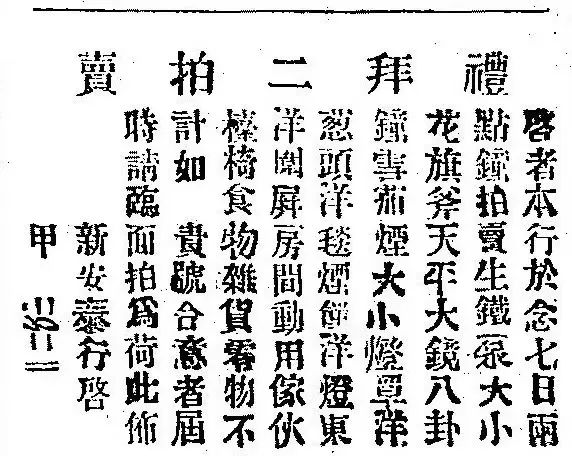 禮拜二拍賣
啓者本行於念七日兩
點鐘拍賣生鐵泵大小
花旗斧天平大鏡八卦
鐘雪茄煙大小燈罩洋
葱頭洋毯煙餅洋燈東
洋圍屏房間動用傢伙
檯椅食物雜貨零物不
計如 貴號合意者屆
時請臨而拍爲荷此佈
新安泰行啓
甲